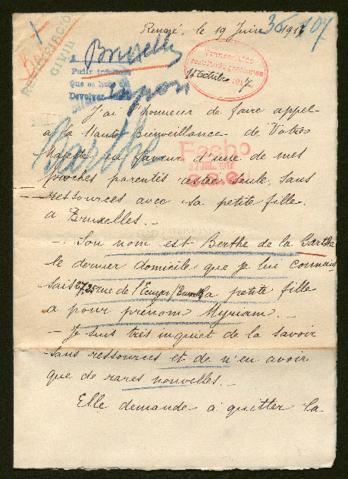 le 19 Juin 1917
Bruselles
Pedir informe
que se hable en
Devolver
J'ai l'honneur de faire appel
à la haute Bienveillance de Votre
Majesté en faveur d'une de mes
proches parentes restée seule, sans
ressources avec sa petite fille
à Bruxelles.
- Son nom est Berthe de la Barthe
le dernier domicile que je lui connais
sais rue de l'Ecuyer, sa petite fille
a pour prénom Myriam. -
- Je suis très inquiet de la savoir
sans ressources et de n'en avoir
que de rares nouvelles. -
Elle demande à quitter la